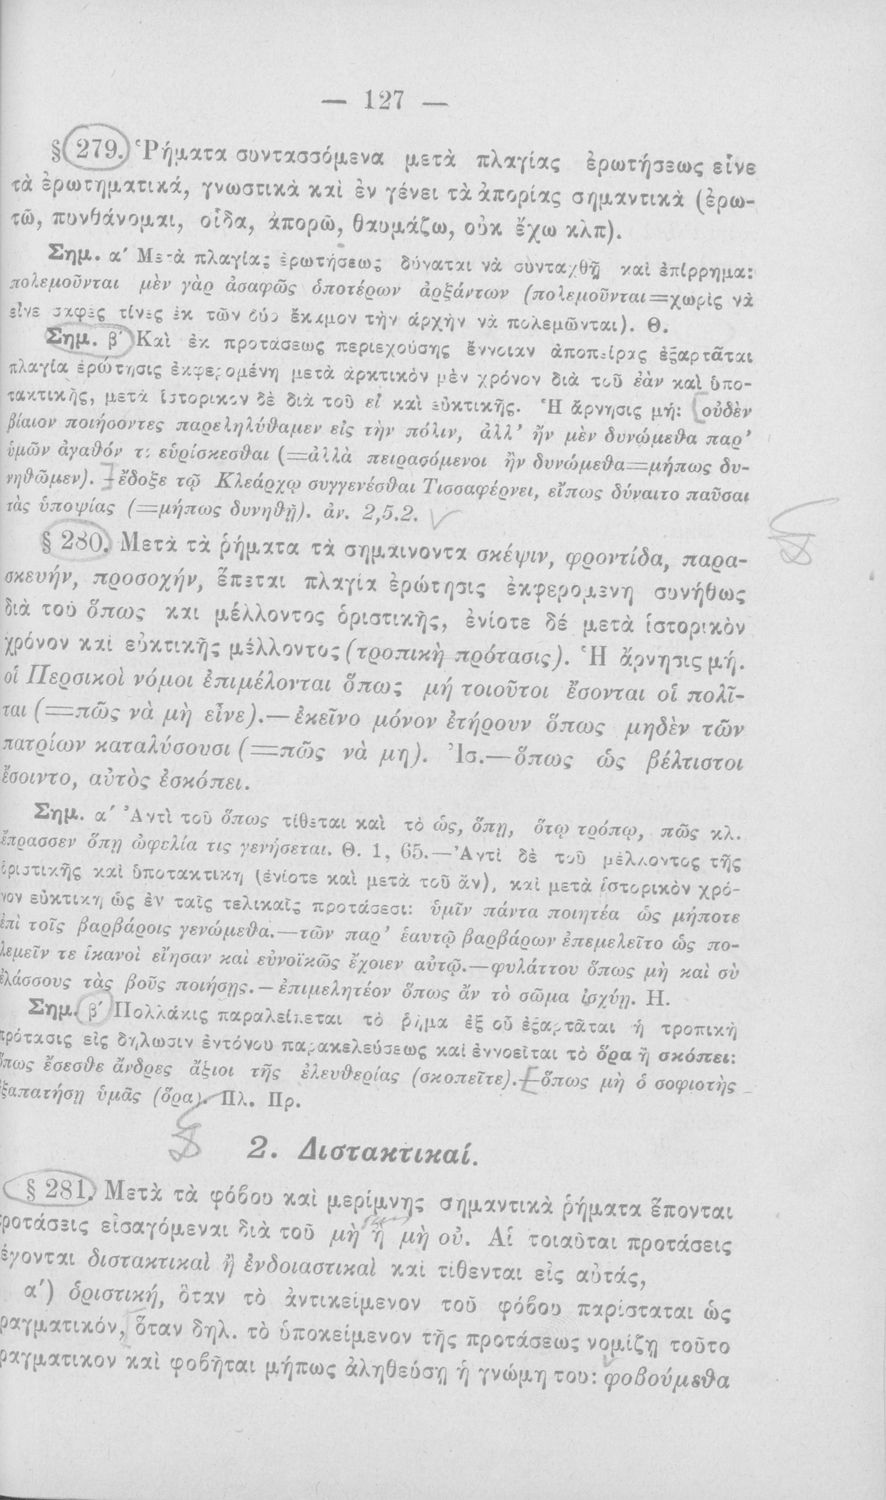 — 127 —
§ 279. Ῥήματα συντασσόμενα μετὰ πλαγίας ἐρωτήσεως εἶνε
τὰ ἐρωτηματικά, γνωστικὰ καὶ ἐν γένει τὰ ἀπορίας σημαντικὰ (ἐρω-
τῶ, πυνθάνομαι, οἶδα, ἀπορῶ, θαυμάζω, οὐκ ἔχω κλπ).
Σημ. α΄ Μετὰ πλαγίας ἐρωτήσεως δύναται νὰ συνταχθῇ καὶ ἐπίρρημα:
πολεμοῦνται μὲν γὰρ ἀσαφῶς ὁποτέρων ἀρξάντων (πολεμοῦνται=χωρὶς νὰ
εἶνε σαφὲς τίνες ἐκ τῶν δύο ἔκαμον τὴν ἀρχὴν νὰ πολεμῶνται). Θ.
Σημ. β΄ Καὶ ἐκ προτάσεως περιεχούσης ἔννοιαν ἀποπείρας ἐξαρτᾶται
πλαγία ἐρώτησις ἐκφερομένη μετὰ ἀρκτικὸν μὲν χρόνον διὰ τοῦ ἐὰν καὶ ὑπο-
τακτικῆς, μετὰ ἱστορικὸν δὲ διὰ τοῦ εἰ καὶ εὐκτικῆς. Ἡ ἄρνησις μή: οὐδὲν
βίαιον ποιήσοντες παρεληλύθαμεν εἰς τὴν πόλιν, ἀλλ’ ἤν μὲν δυνώμεθα παρ’
ὑμῶν ἀγαθόν τι εὑρίσκεσθαι (=ἀλλὰ πειρασόμενοι ἢν δυνώμεθα=μήπως δυ-
νηθῶμεν).—ἔδοξε τῷ Κλεάρχῳ συγγενέσθαι Τισσαφέρνει, εἴπως δύναιτο παῦσαι
τὰς ὑποψίας (=μήπως δυνηθῇ). ἀν. 2,5.2.
§ 280. Μετὰ τὰ ῥήματα τὰ σημαινοντα σκέψιν, φροντίδα, παρα-
σκευήν, προσοχήν, ἕπεται πλαγία ἐρώτησις ἐκφερομενη συνήθως
διὰ τοῦ ὅπως και μέλλοντος ὁριστικῆς, ἐνίοτε δέ μετὰ ἱστορικὸν
χρόνον καὶ εὐκτικῆς μέλλοντος (τροπικὴ πρότασις). Ἡ ἄρνησις μή.
οἱ Περσικοὶ νόμοι ἐπιμέλονται ὅπως μή τοιοῦτοι ἔσονται οἱ πολῖ-
ται (=πῶς νὰ μὴ εἶνε).—ἐκεῖνο μόνον ἐτήρουν ὅπως μηδὲν τῶν
πατρίων καταλύσουσι (=πῶς νὰ μη). Ἰσ.—ὅπως ὡς βέλτιστοι
ἔσοιντο, αὐτὸς ἐσκόπει.
Σημ. α΄ Ἀντὶ τοῦ ὅπως τίθεται καὶ τὸ ὡς, ὅπῃ, ὅτῳ τρόπῳ, πῶς κλ.
ἔπρασσεν ὅπῃ ὠφελία τις γενήσεται. Θ. 1, 65.—Ἀντὶ δὲ τοῦ μέλλοντος τῆς
ὁριστικῆς καὶ ὑποτακτικὴ (ἐνίοτε καὶ μετὰ τοῦ ἄν), καὶ μετὰ ἱστορικὸν χρό-
νον εὐκτικὴ ὡς ἐν ταῖς τελικαῖς προτάσεσι: ὑμῖν πάντα ποιητέα ὡς μήποτε
ἐπὶ τοῖς βαρβάροις γενώμεθα.—τῶν παρ’ ἑαυτῷ βαρβάρων ἐπεμελεῖτο ὡς πο-
λεμεῖν τε ἱκανοὶ εἴησαν καὶ εὐνοϊκῶς ἔχοιεν αὐτῷ.—φυλάττου ὅπως μὴ καὶ σὺ
ἐλάσσους τὰς βοῦς ποιήσῃς.—ἐπιμελητέον ὅπως ἄν τὸ σῶμα ἰσχύῃ. Η.
Σημ. β΄ Πολλάκις παραλείπεται τὸ ῥῆμα ἐξ οὗ ἐξαρτᾶται ἡ τροπικὴ
πρότασις εἰς δήλωσιν ἐντόνου παρακελεύσεως καὶ ἐννοεῖται τὸ ὅρα ἢ σκόπει:
ὅπως ἔσεσθε ἄνδρες ἄξιοι τῆς ἐλευθερίας (σκοπεῖτε).—ὅπως μὴ ὁ σοφιστὴς
ἐξαπατήσῃ ὑμᾶς (ὅρα). Πλ. Πρ.
2. Διστακτικαί.
§ 281. Μετὰ τὰ φόβου καὶ μερίμνης σημαντικὰ ῥήματα ἕπονται
προτάσεις εἰσαγόμεναι διὰ τοῦ μὴ ἢ μὴ οὐ. Αἱ τοιαῦται προτάσεις
λέγονται διστακτικαὶ ἢ ἐνδοιαστικαὶ καὶ τίθενται εἰς αὐτάς,
α΄) ὁριστική, ὅταν τὸ ἀντικείμενον τοῦ φόβου παρίσταται ὡς
πραγματικόν, ὅταν δηλ. τὸ ὑποκείμενον τῆς προτάσεως νομίζῃ τοῦτο
πραγματικον καὶ φοβῆται μήπως ἀληθεύσῃ ἡ γνώμη του: φοβούμεθα